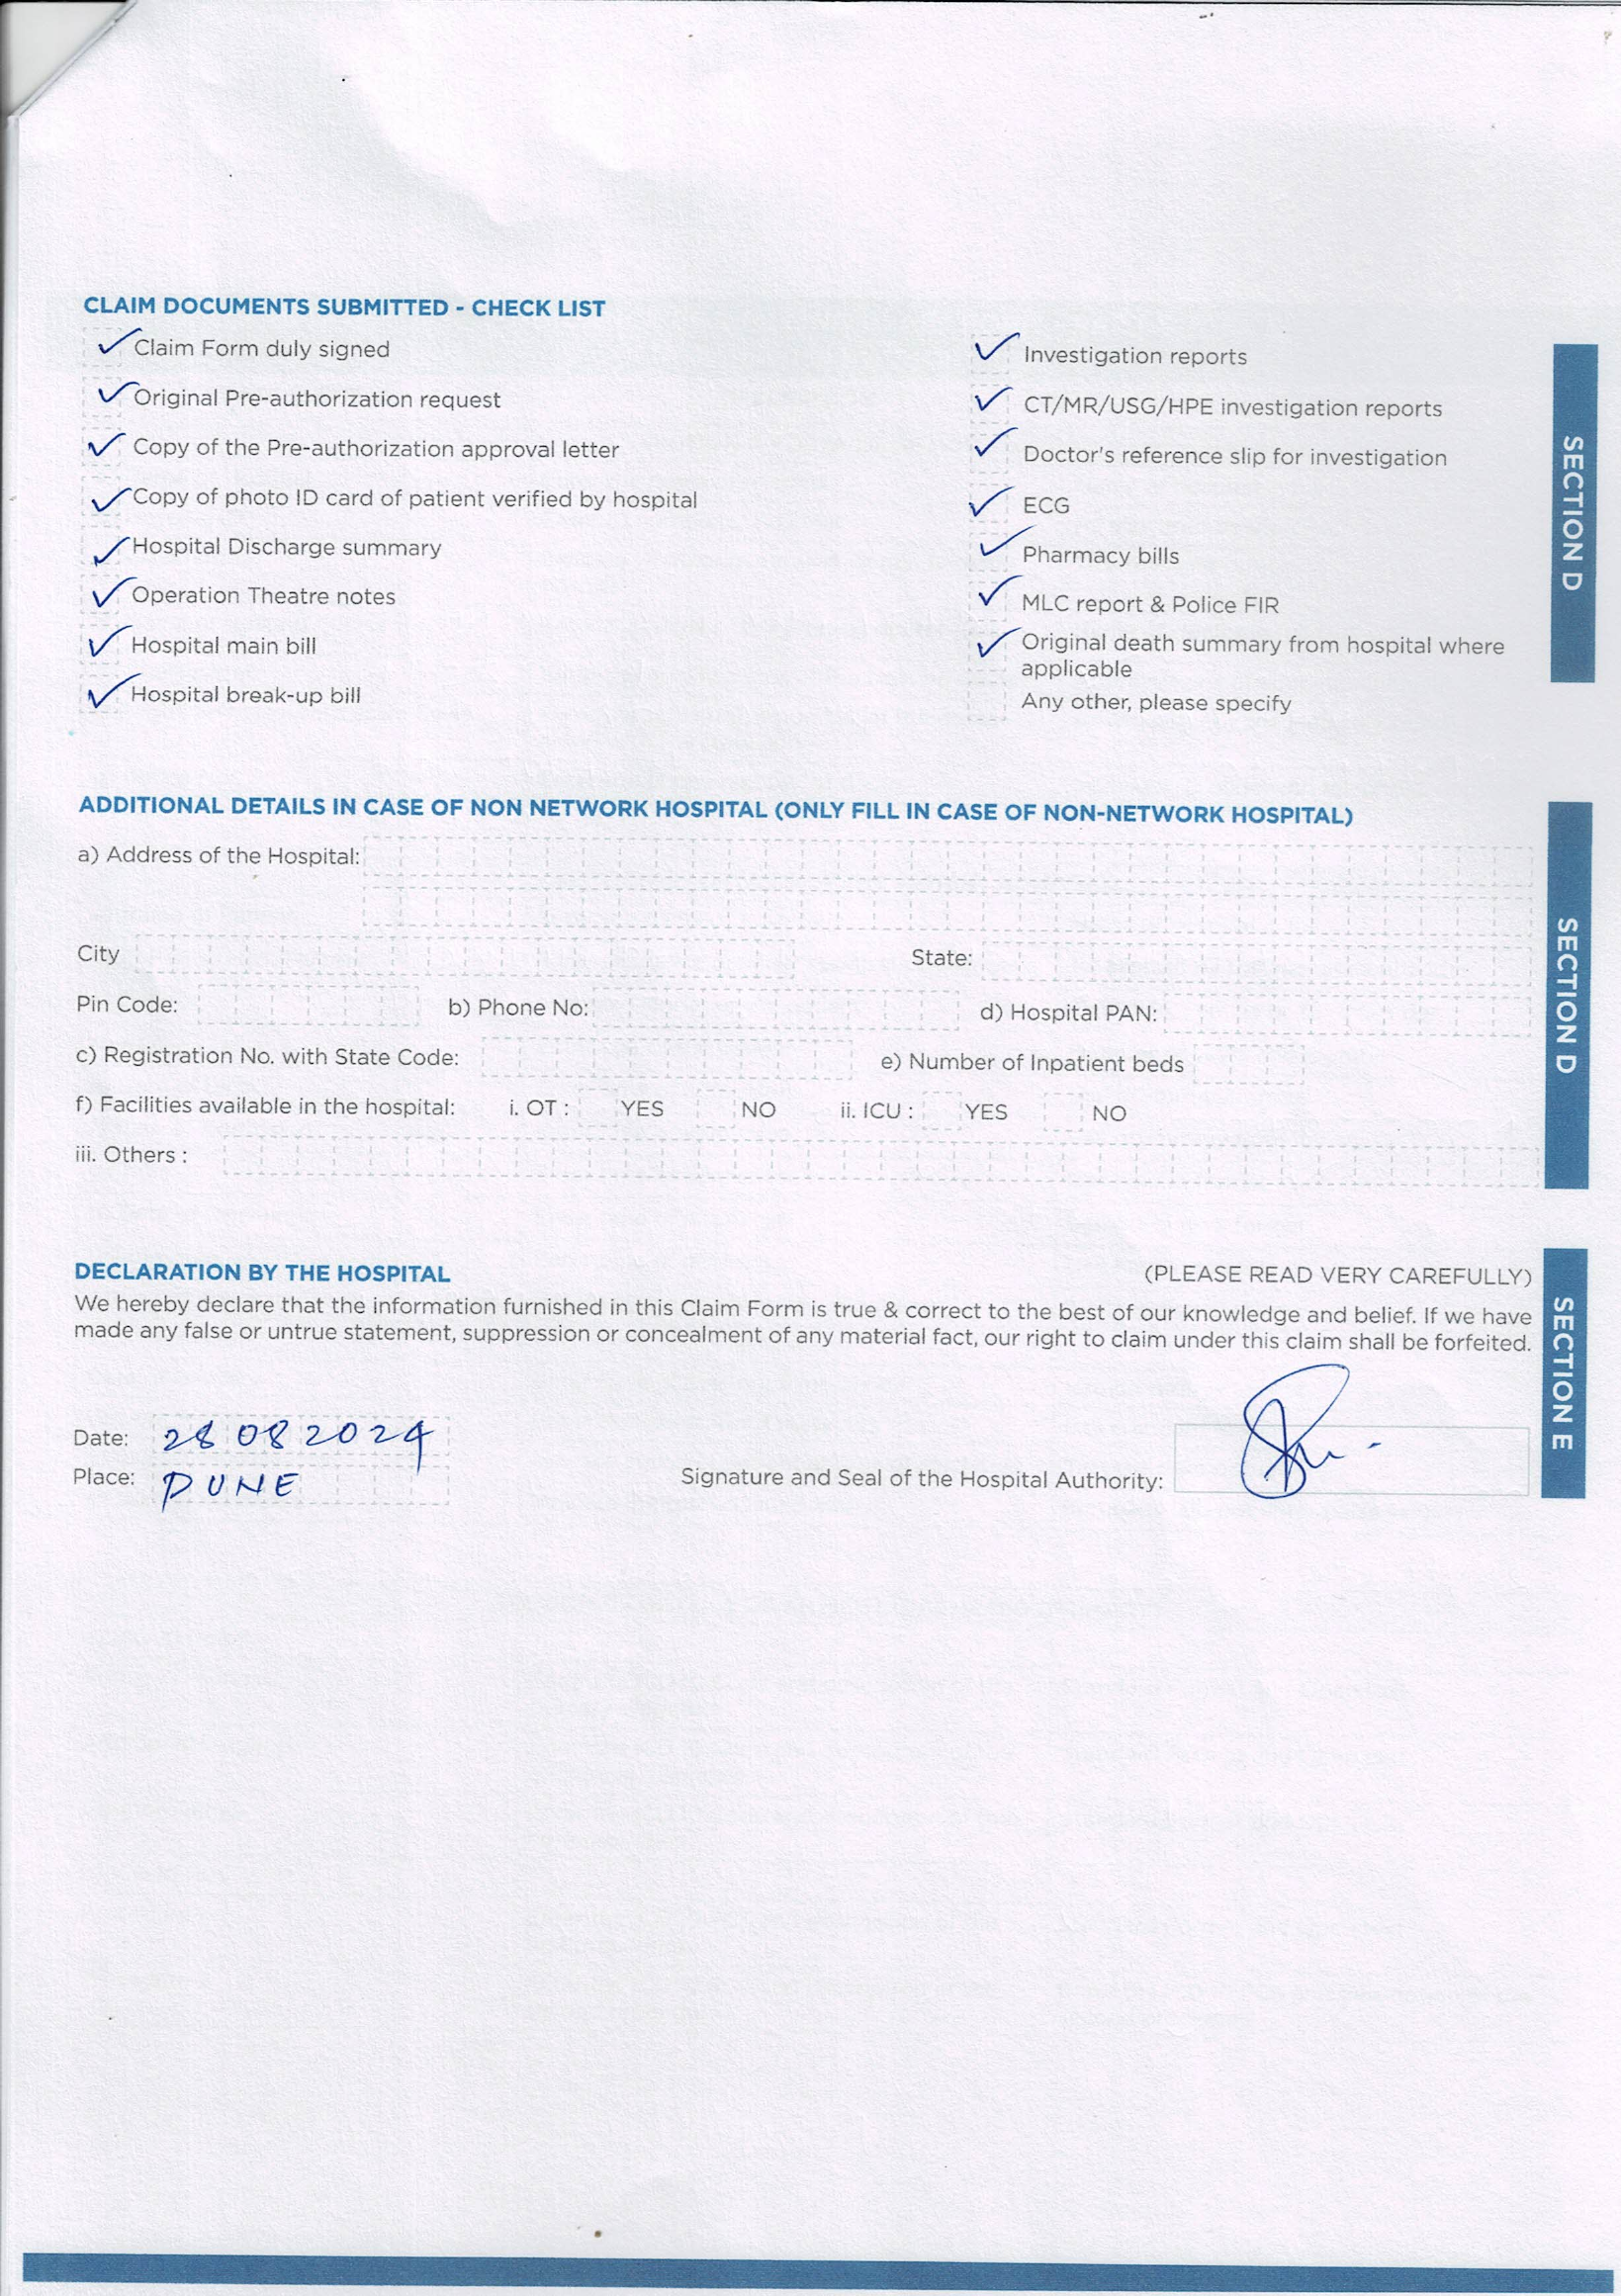 CLAIM DOCUMENTS SUBMITTED - CHECK LIST
✓ Claim Form duly signed
✓ Original Pre-authorization request
✓ Copy of the Pre-authorization approval letter
✓ Copy of photo ID card of patient verified by hospital
✓ Hospital Discharge summary
✓ Operation Theatre notes
✓ Hospital main bill
✓ Hospital break-up bill
✓ Investigation reports
✓ CT/MR/USG/HPE investigation reports
✓ Doctor's reference slip for investigation
✓ ECG
✓ Pharmacy bills
✓ MLC report & Police FIR
✓ Original death summary from hospital where
applicable
Any other, please specify
SECTION D
ADDITIONAL DETAILS IN CASE OF NON NETWORK HOSPITAL (ONLY FILL IN CASE OF NON-NETWORK HOSPITAL)
a) Address of the Hospital:
City State:
Pin Code: b) Phone No: d) Hospital PAN:
c) Registration No. with State Code: e) Number of Inpatient beds
f) Facilities available in the hospital: i. OT : YES NO ii. ICU : YES NO
iii. Others :
SECTION D
DECLARATION BY THE HOSPITAL (PLEASE READ VERY CAREFULLY)
We hereby declare that the information furnished in this Claim Form is true & correct to the best of our knowledge and belief. If we have
made any false or untrue statement, suppression or concealment of any material fact, our right to claim under this claim shall be forfeited.
Date: 28 08 2024
Place: PUNE Signature and Seal of the Hospital Authority:
SECTION E